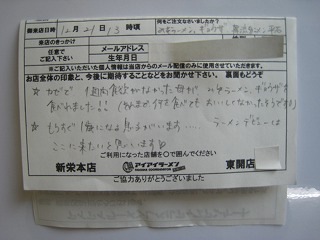 御来店日時 12月21日 13時頃
何をご注文なさいましたか?
みそラーメン、ギョウザ
来店のきっかけ
任意で
ご記入下さい
メールアドレス
生年月日
※ご記入いただいた個人情報は当店からのメール配信のみに使用させていただきます。
お店全体の印象と、今後に期待することなどをお聞かせ下さい。 裏面もどうぞ
☆ カゼで 1週間食欲がなかった母が みそラーメン、ギョウザを
食べれました!!
☆ もうすぐ1歳になる息子がいます…… ラーメンデビューは
ここに来たいと思っています
新栄本店
ご利用になった店舗を○で囲んでください
アイアイラーメン
ご協力ありがとうございました
東開店